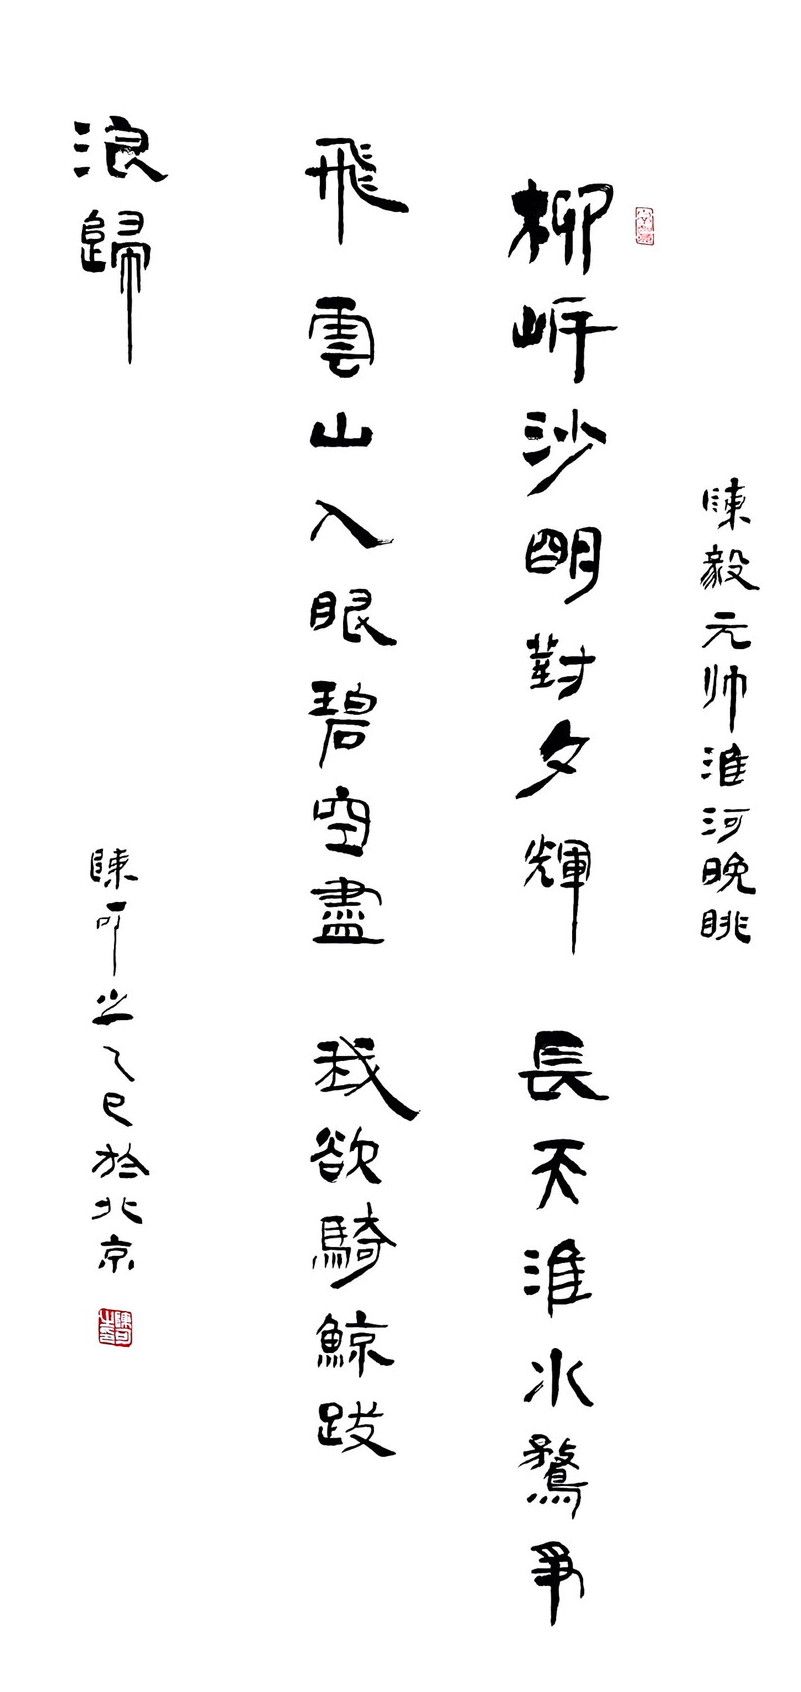 陳毅元帅淮河晚眺
柳岸沙明對夕輝長天淮水鶩爭
飛雲山入眼碧空盡我欲騎鯨跋
浪歸
陳可之乙巳於北京
陳可之印